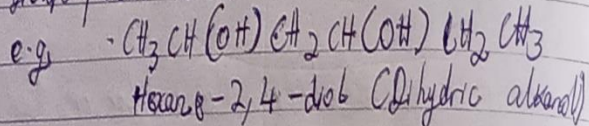 e.g. - CH3 CH(OH) CH2 CH(OH) CH2 CH3
Hexane-2,4-diol (Dihydric alkanol)